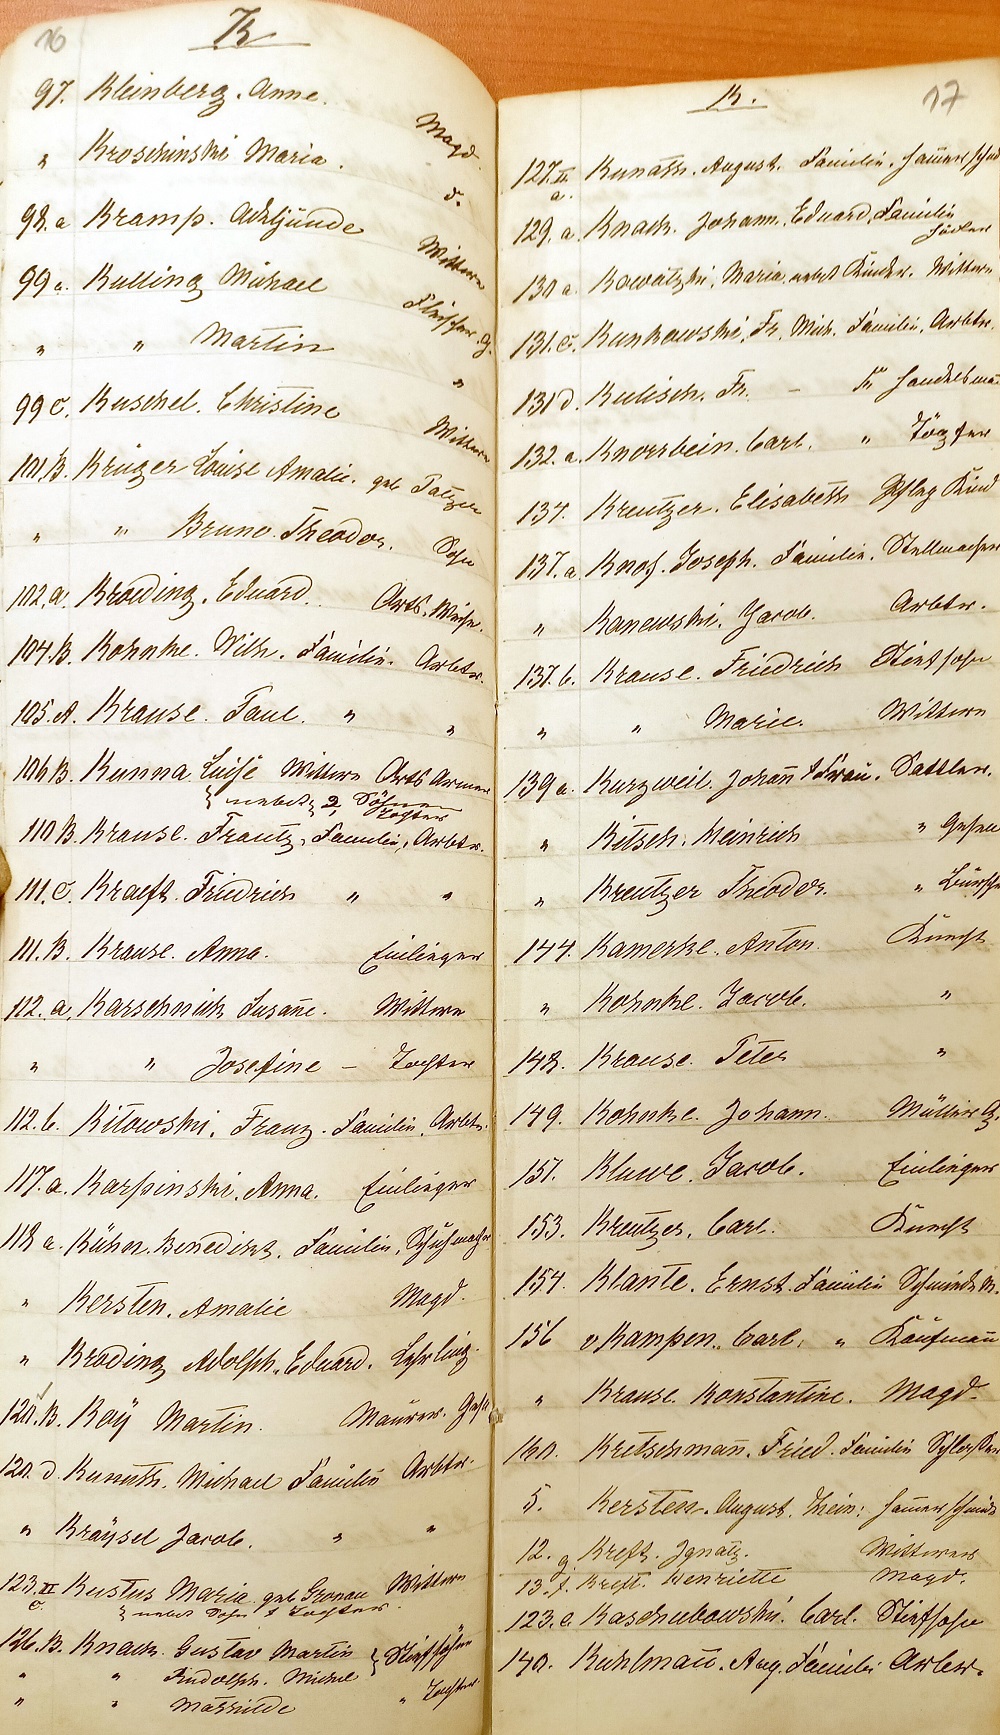 16
K
97. Kleinberg. Anne. Magd.
" Kroschinski Maria. d.
98. a Kramp. Adelgunde Wittwe
99 a. Kulling Michael Fleischer. G.
" " Martin "
99 C. Kuschel. Christine Wittwe
101 B. Krüger Louise Amalie. geb Patzer
" " Bruno Theodor. Sohn
102. a. Kroeding. Eduard. Orts. Waise.
104. B. Kohnke. Wilh. Familie. Arbtr.
105. A. Krause. Paul. " "
106 B. Kunna Luise Wittwe Orts Armen
nebst 2 Söhnen Tochter
110 B. Krause. Frantz, Familie, Arbtr.
111. C. Kraeft. Friedrich " "
111. B. Krause. Anna. Einlieger
112. a. Karschnick Susane. Wittwe
" " Josefine – Tochter
112. b. Kitowski. Franz. Familie. Arbtr.
117. a. Karpinski. Anna. Einlieger
118 a. Kühn. Benedikt. Familie, Schuhmacher
" Kersten. Amalie Magd.
" Kroding Adolph. Eduard. Lehrling.
120. B. Koÿ Martin. Maurer. Gesell
120. d. Kunath. Michael Familie Arbtr.
" Kräysel Jacob. " "
123. II c. Kustus Maria geb Gronau Wittwe
nebst Sohn & Tochter.
126. B. Knack. Gustav Martin Stiefsöhne
" " Rudolph. Michel
" " Mathilde " Tochter
17
K.
127. II a. Kunath. August. Familie. Hammerschmd
129. a. Knack. Johann. Eduard, Familie
130 a. Kowalzki, Maria, nebst Kinder. Wittwe
131. C. Kunkowski, Fr. Mich. Familie, Arbtr.
131 d. Kulisch. Fr. – Fr Handelsman
132. a. Knorrbein. Carl. " Töpfer
134. Kreutzer. Elisabeth Pfleg Kind
137. a Knof. Joseph. Familie. Stellmacher
" Kanewski. Jacob. Arbtr.
137. b. Krause. Friedrich Stiefsohn
" " Marie. Wittwe
139 a. Kurzweil. Johan̄ & Frau. Sattler.
" Kitsch. Heinrich " Gesell
" Kreutzer Theodor. " Bursche
144. Kamerke. Anton. Knecht
" Kohnke. Jacob. "
148. Krause. Peter "
149. Kohnke. Johann. Müller G.
151. Kluwe. Jacob. Einlieger
153. Kreutzer. Carl. Knecht
154. Klante. Ernst. Familie Schmiede M.
156 v. Kampen. Carl. " Kaufman̄
" Krause. Konstantine. Magd.
160. Kretschman̄. Fried. Familie Schlosser
5. Kersten. August. Hammerschmid
12. g Kreft. Ignatz. Wittwer
13. f. Kreft. Henriette Magd.
123. c. Kaschubowski. Carl. Stiefsohn
140. Kuhlman̄. Aug. Familie Arbtr.